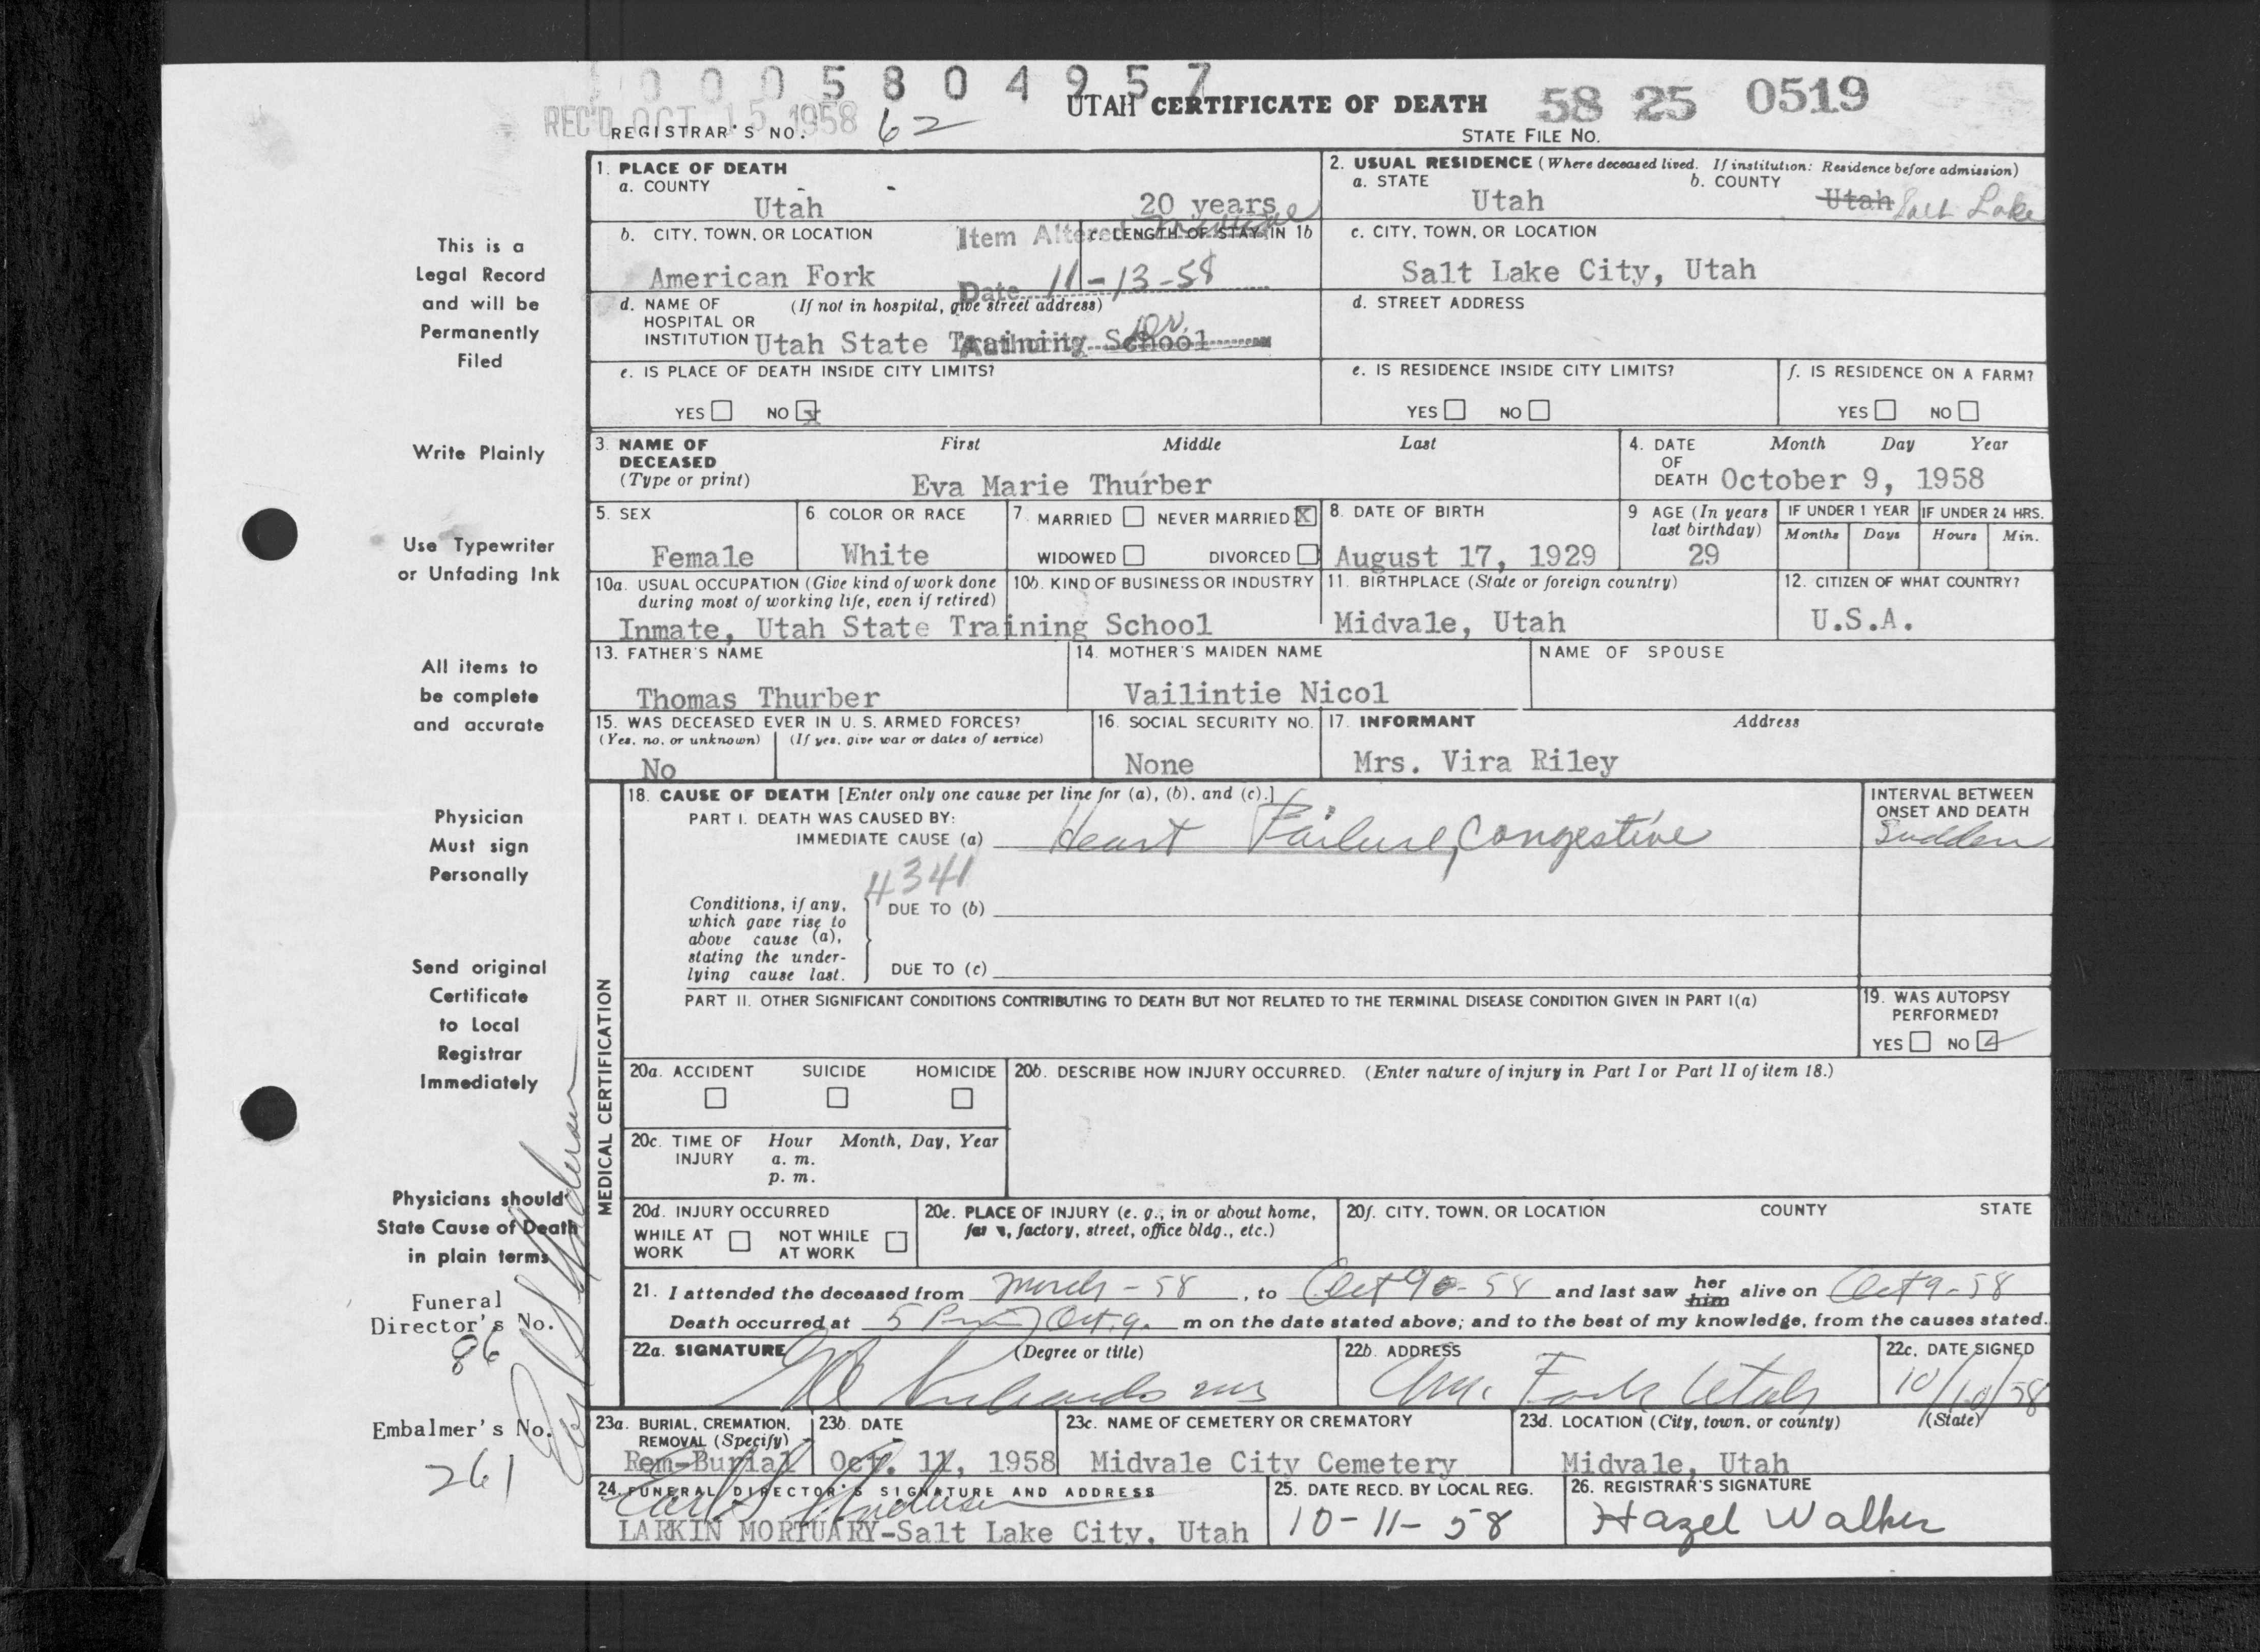 0 0 0 5 8 0 4 9 5 7
REC'D OCT 15 1958
UTAH CERTIFICATE OF DEATH 58 25 0519
REGISTRAR'S NO. 62
STATE FILE NO.
This is a
Legal Record
and will be
Permanently
Filed
Write Plainly
Use Typewriter
or Unfading Ink
All items to
be complete
and accurate
Physician
Must sign
Personally
Send original
Certificate
to Local
Registrar
Immediately
Physicians should
State Cause of Death
in plain terms
Funeral
Director's No.
86
Embalmer's No.
261
1. PLACE OF DEATH
a. COUNTY
Utah
20 years
2. USUAL RESIDENCE (Where deceased lived. If institution: Residence before admission)
a. STATE
Utah
b. COUNTY
Utah Salt Lake
b. CITY, TOWN, OR LOCATION
American Fork
c. LENGTH OF STAY IN 1b
Item Altered
Date 11-13-58
Authority
c. CITY, TOWN, OR LOCATION
Salt Lake City, Utah
d. NAME OF (If not in hospital, give street address)
HOSPITAL OR
INSTITUTION Utah State Training School
d. STREET ADDRESS
e. IS PLACE OF DEATH INSIDE CITY LIMITS?
YES NO X
e. IS RESIDENCE INSIDE CITY LIMITS?
YES NO
f. IS RESIDENCE ON A FARM?
YES NO
3. NAME OF DECEASED
(Type or print)
First Middle Last
Eva Marie Thurber
4. DATE OF DEATH
Month Day Year
October 9, 1958
5. SEX
Female
6 COLOR OR RACE
White
7 MARRIED NEVER MARRIED X
WIDOWED DIVORCED
8. DATE OF BIRTH
August 17, 1929
9 AGE (In years last birthday)
29
IF UNDER 1 YEAR
Months Days
IF UNDER 24 HRS.
Hours Min.
10a. USUAL OCCUPATION (Give kind of work done
during most of working life, even if retired)
10b. KIND OF BUSINESS OR INDUSTRY
Inmate, Utah State Training School
11. BIRTHPLACE (State or foreign country)
Midvale, Utah
12. CITIZEN OF WHAT COUNTRY?
U.S.A.
13. FATHER'S NAME
Thomas Thurber
14. MOTHER'S MAIDEN NAME
Vailintie Nicol
NAME OF SPOUSE
15. WAS DECEASED EVER IN U. S. ARMED FORCES?
(Yes, no, or unknown) (If yes, give war or dates of service)
No
16. SOCIAL SECURITY NO.
None
17. INFORMANT Address
Mrs. Vira Riley
MEDICAL CERTIFICATION
18. CAUSE OF DEATH [Enter only one cause per line for (a), (b), and (c).]
PART I. DEATH WAS CAUSED BY:
IMMEDIATE CAUSE (a) Heart Failure, Congestive
INTERVAL BETWEEN
ONSET AND DEATH
Sudden
4341
Conditions, if any,
which gave rise to
above cause (a),
stating the under-
lying cause last.
DUE TO (b)
DUE TO (c)
PART II. OTHER SIGNIFICANT CONDITIONS CONTRIBUTING TO DEATH BUT NOT RELATED TO THE TERMINAL DISEASE CONDITION GIVEN IN PART I(a)
19. WAS AUTOPSY
PERFORMED?
YES NO
20a. ACCIDENT SUICIDE HOMICIDE
20b. DESCRIBE HOW INJURY OCCURRED. (Enter nature of injury in Part I or Part II of item 18.)
20c. TIME OF INJURY
Hour Month, Day, Year
a. m.
p. m.
20d. INJURY OCCURRED
WHILE AT WORK NOT WHILE AT WORK
20e. PLACE OF INJURY (e. g., in or about home,
factory, street, office bldg., etc.)
20f. CITY, TOWN, OR LOCATION COUNTY STATE
21. I attended the deceased from March - 58, to Oct 9 - 58 and last saw her him alive on Oct 9 - 58
Death occurred at 5 Pm Oct. 9. m on the date stated above; and to the best of my knowledge, from the causes stated.
22a. SIGNATURE (Degree or title)
Richards
22b. ADDRESS
Am. Fork Utah
22c. DATE SIGNED
10/10/58
23a. BURIAL, CREMATION,
REMOVAL (Specify)
Rem-Burial
23b. DATE
Oct. 11, 1958
23c. NAME OF CEMETERY OR CREMATORY
Midvale City Cemetery
23d. LOCATION (City, town, or county) (State)
Midvale, Utah
24. FUNERAL DIRECTOR'S SIGNATURE AND ADDRESS
LARKIN MORTUARY-Salt Lake City, Utah
25. DATE RECD. BY LOCAL REG.
10-11-58
26. REGISTRAR'S SIGNATURE
Hazel Walker